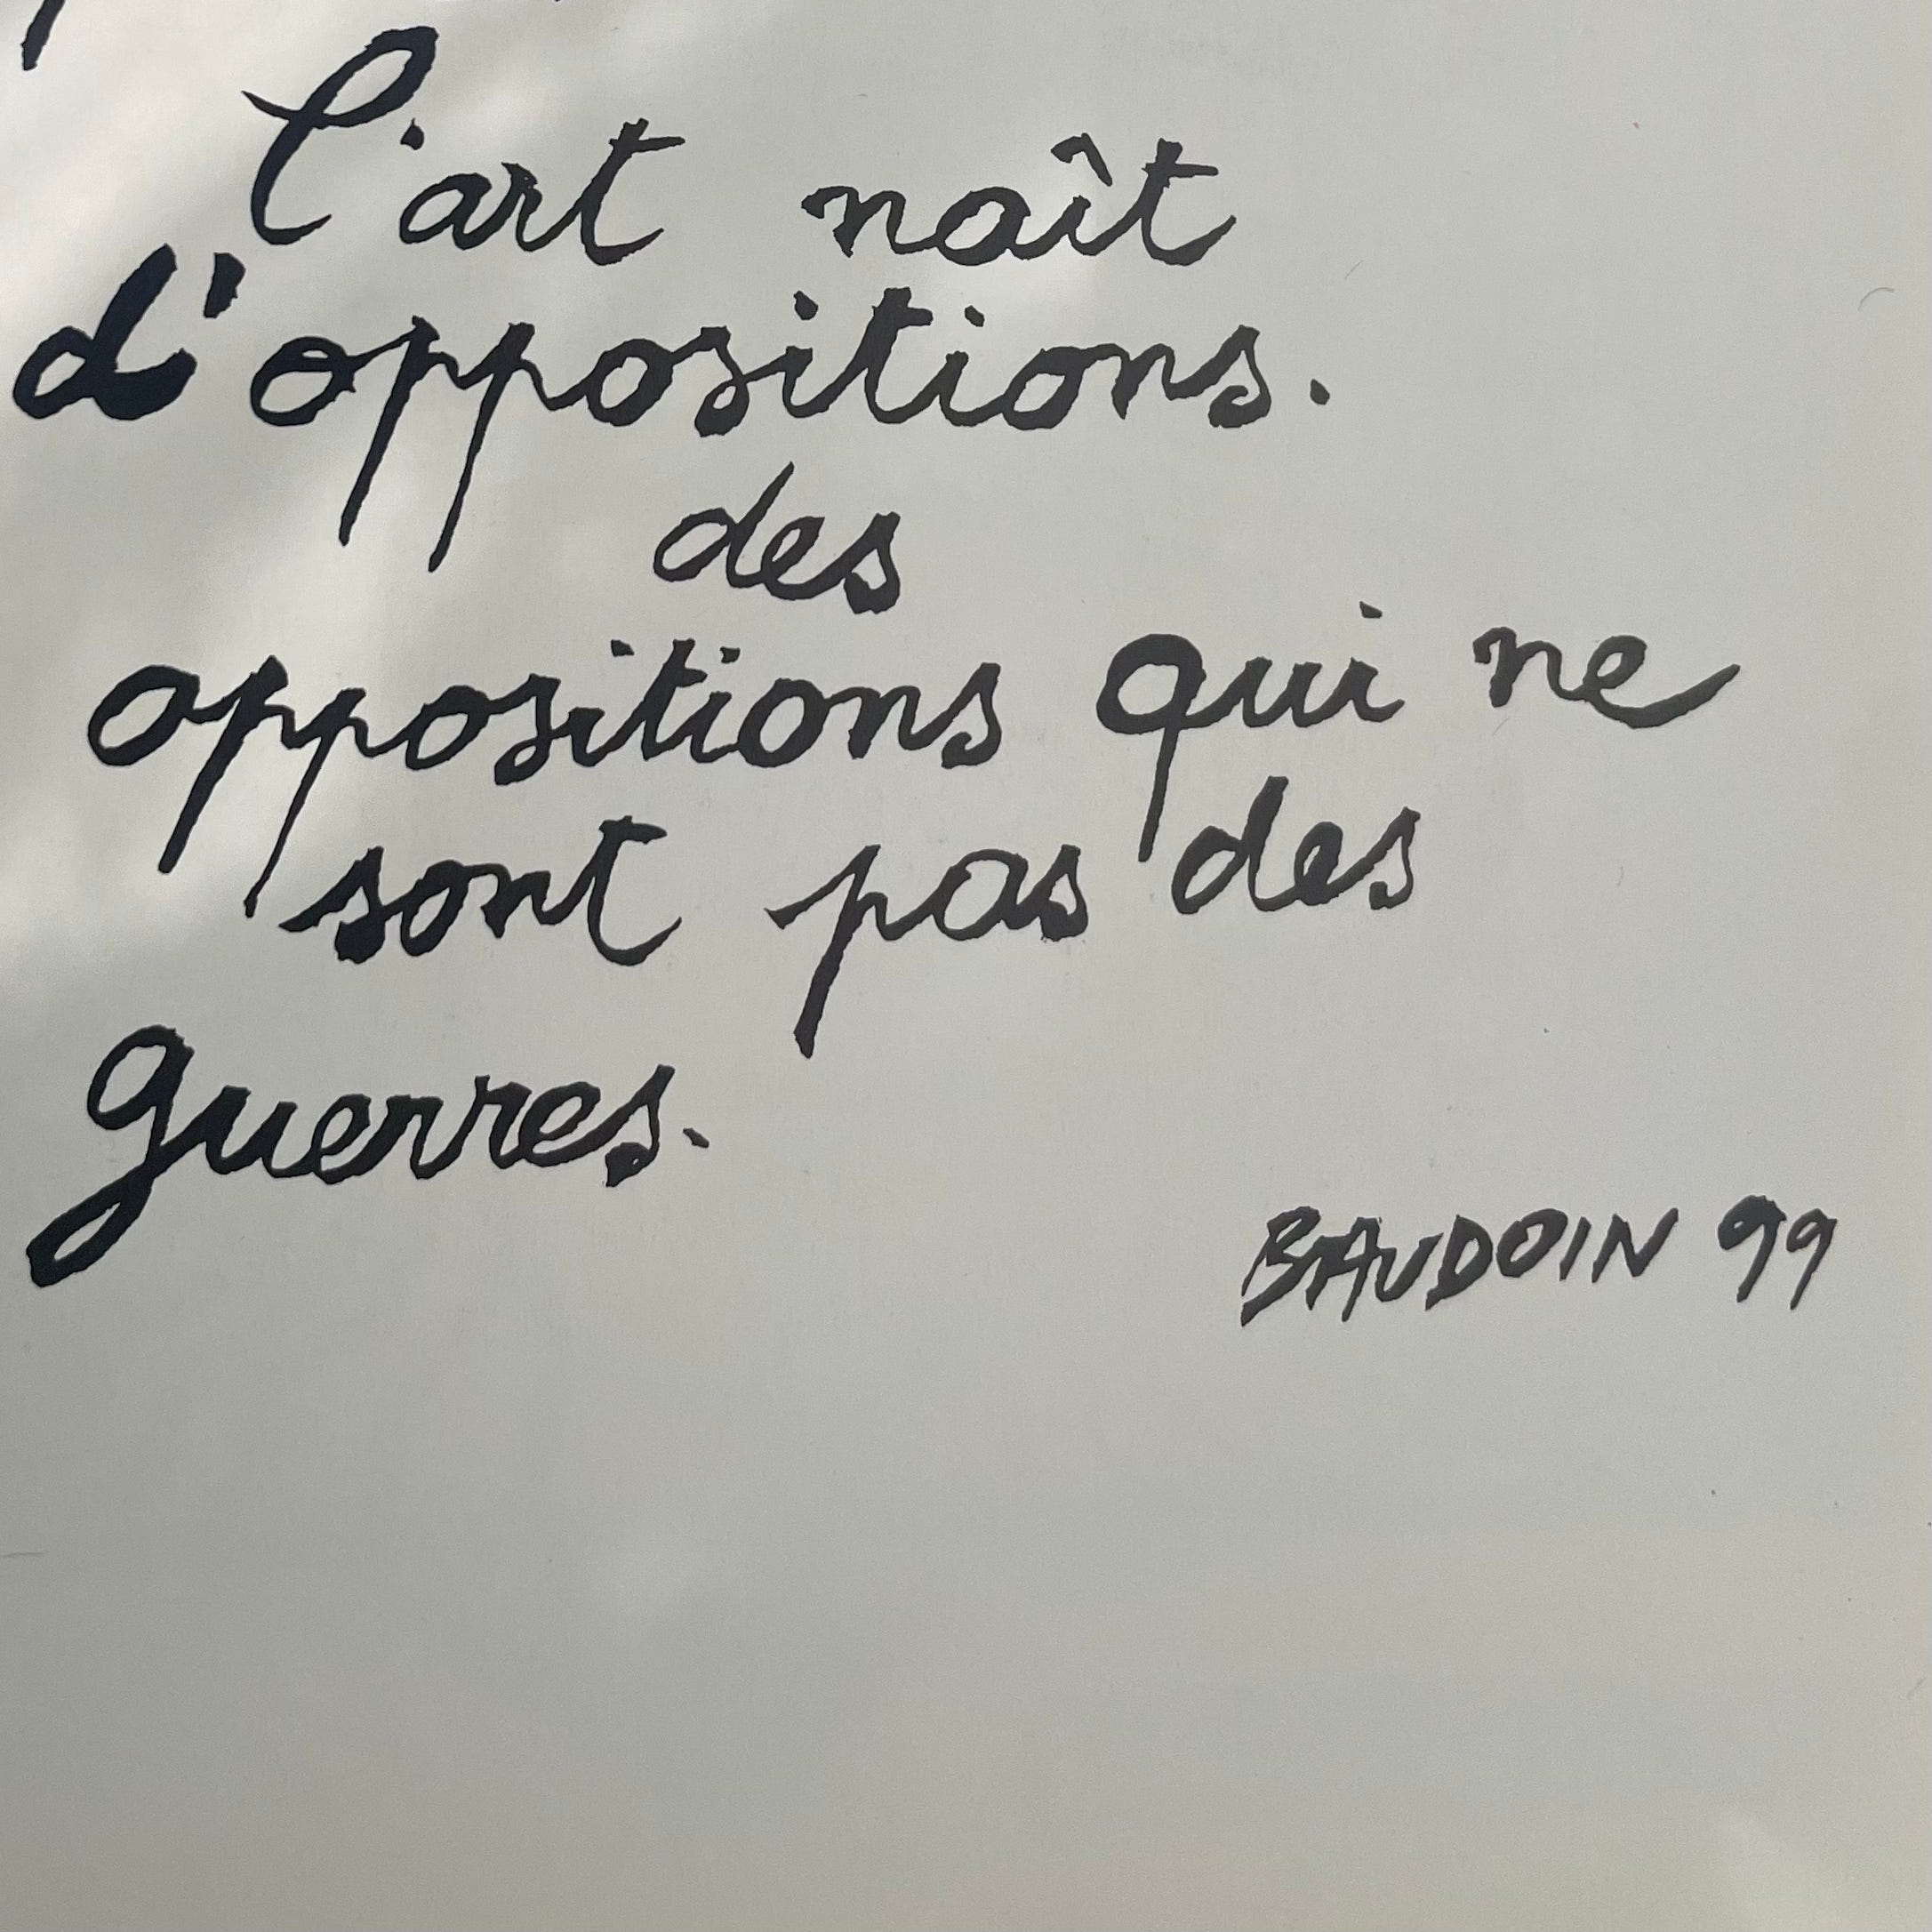 l'art naît
d'oppositions.
des
oppositions qui ne
sont pas des
guerres.
BAUDOIN 99